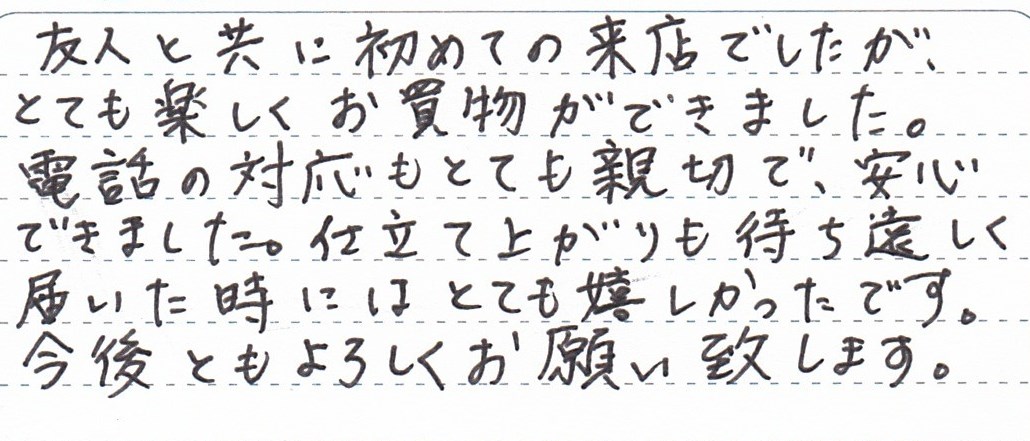 友人と共に初めての来店でしたが、
とても楽しくお買物ができました。
電話の対応もとても親切で、安心
できました。仕立て上がりも待ち遠しく
届いた時にはとても嬉しかったです。
今後ともよろしくお願い致します。